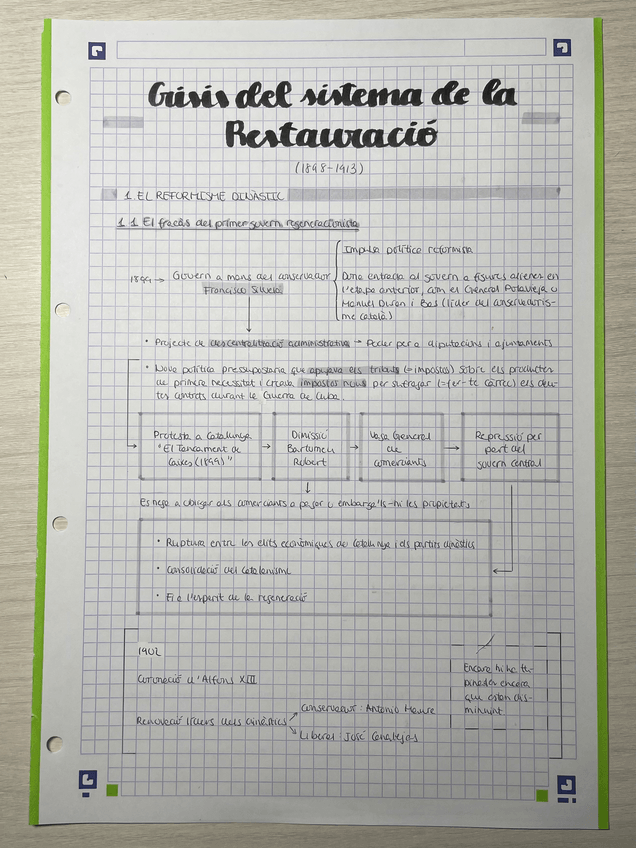 Crisis del sistema de la
Restauració
(1898-1913)
1. EL REFORMISME DINÀSTIC
1.1 El fracàs del primer govern regeneracionista
1899 → Govern a mans del conservador
Francisco Silvela
Impulsa política reformista
Dona entrada al govern a figures alienes en
l'etapa anterior, com el General Polavieja o
Manuel Duran i Bas (líder del conservadoris-
me català)
• Projecte de descentralització administrativa → Poder per a diputacions i ajuntaments
• Nova política pressupostaria que apujava els tributs (=impostos) sobre els productes
de primera necessitat i creava impostos nous per sufragar (=fer-te càrrec) els deu-
tes contrets durant la Guerra de Cuba.
Protesta a Catalunya
"El Tancament de
Caixes (1899)"
Dimissió
Bartumeu
Robert
Vaga General
de
comerciants
Repressió per
part del
govern central
Es nega a obligar als comerciants a pagar o embargar'ls-hi les propietats
• Ruptura entre les elits econòmiques de Catalunya i els partits dinàstics
• Consolidació del catalanisme
• Fi a l'esperit de la regeneració
1902
Coronació d'Alfons XIII
Renovació líders dels dinàstics
Conservador: Antonio Maura
Liberal: José Canalejas
Encara hi ha
encara
que estan dis-
minuint